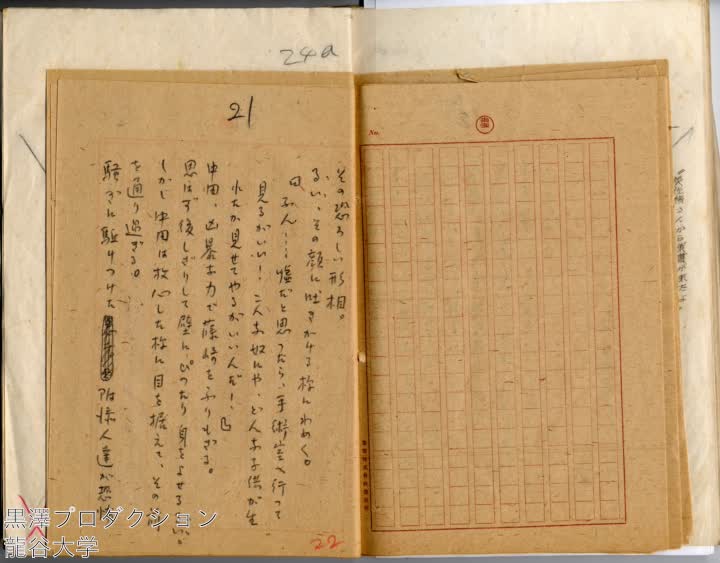 24a
21
その恐ろしい形相。
るい、その顔に吐きかける様にわめく。
「ふん……嘘だと思つたら、手術室へ行って
見るがいい! こんな奴にや、どんな子供が生
れたか見せてやるがいいんだ!」
中田、凶暴な力で藤崎をふりもぎる。
思はず後しざりして壁にぴつたり身をよせるるい。
しかし中田は放心した様に目を据えて、その前
を通り過ぎる。
騒ぎに駆けつけた
人達が恐
22
No.
黒澤プロダクション
龍谷大学